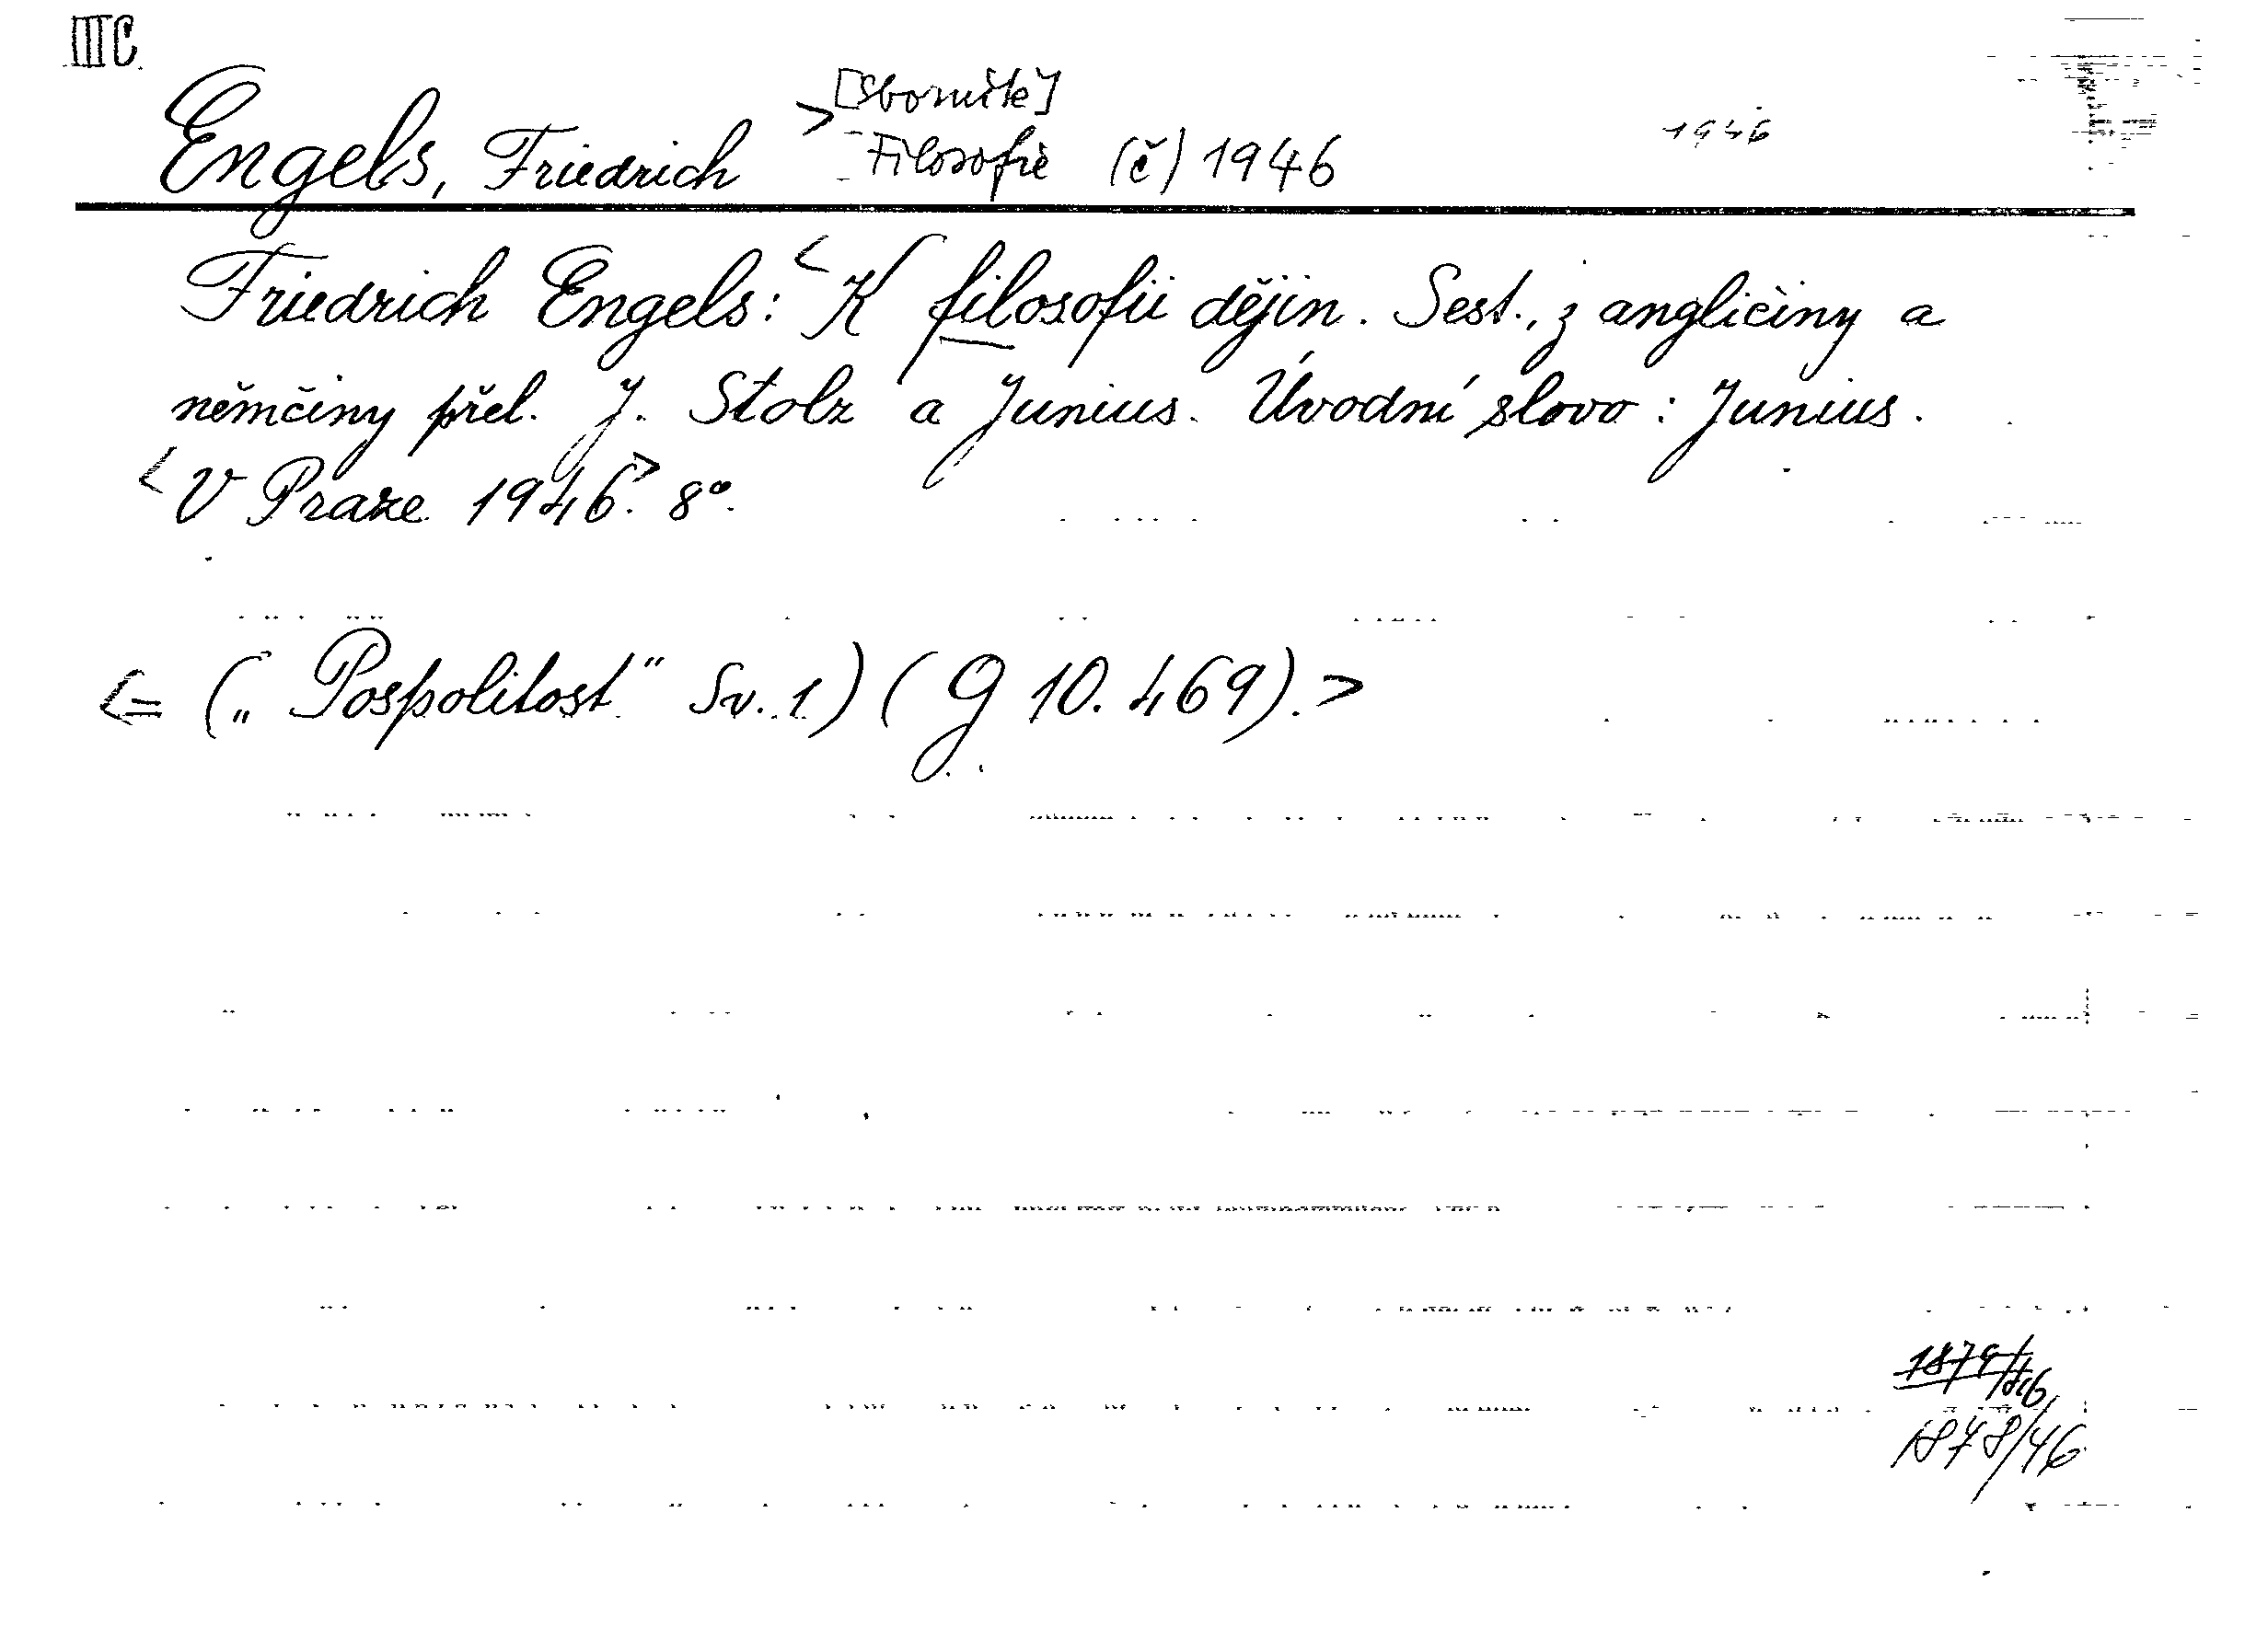 III C
[Sborníčě]
Engels, Friedrich > - Filosofie (č) 1946 1946
Friedrich Engels: < K filosofii dějin. Sest., z angličiny a
němčiny přel. J. Stolz a Junius. Úvodní slovo: Junius.
< V Praze 1946.> 8°.
<= („Pospolitost“ Sv. 1) (G 10.469).>
1879/46
1878/46